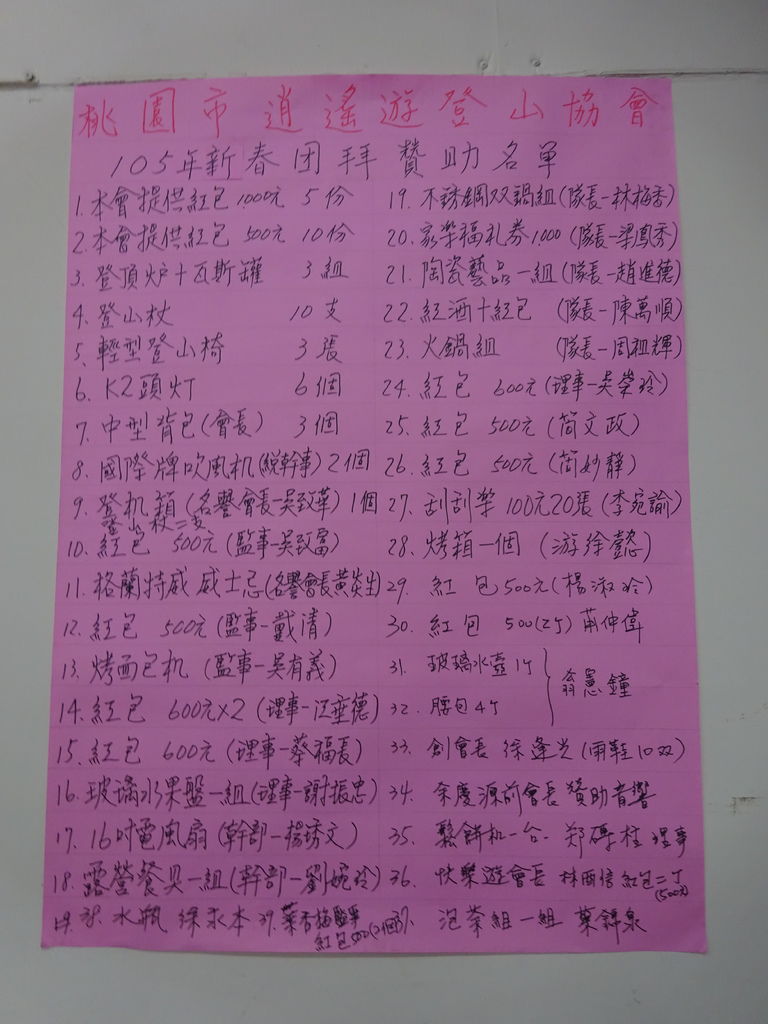 桃園市逍遙遊登山協會
105年新春团拜贊助名單
1.本會提供紅包 1000元 5份
2.本會提供紅包 500元 10份
3.登頂炉十瓦斯罐 3組
4.登山杖 10支
5.輕型登山椅 3張
6.K2頭灯 6個
7.中型背包(會長) 3個
8.國際牌吹風机(總幹事)2個
9.登机箱(名譽會長-吳致華)1個
登山杖二支
10.紅包 500元(監事-吳致富)
11.格蘭特威 威士忌(名譽會長黃炎生)
12.紅包 500元(監事-戴清)
13.烤面包机 (監事-吳有義)
14.紅包 600元x2(理事-江垂德)
15.紅包 600元(理事-蔡福長)
16.玻璃水果盤一組(理事-謝振忠)
17.16吋電風扇(幹部-楊琇文)
18.露營餐具一組(幹部-劉婉玲)
水瓶 徐永本
19.不銹鋼双鍋組(隊長-林梅秀)
20.家楽福礼券1000(隊長-梁鳳秀)
21.陶瓷藝品一組(隊長-趙進德)
22.紅酒十紅包 (隊長-陳萬順)
23.火鍋組 (隊長-周祖輝)
24.紅包 600元(理事-吳榮玲)
25.紅包 500元(简文政)
26.紅包 500元(简妙靜)
27.刮刮楽100元20張(李宛諭)
28.烤箱一個 (游徐懿)
29.紅包500元(楊淑玲)
30.紅包 500(2ケ)
31.玻璃水壺1ケ
32.腰包4ケ
翁憲鐘
33.創會長 徐逢光(雨鞋10双)
34.余慶源前會長 贊助音響
35.鬆餅机一台-郑 桂 理事
36.快樂遊會長 林 信 紅包二ケ
(500元)
37.泡茶組一組 葉 泉
39.葉香梅監事
紅包500(2個)